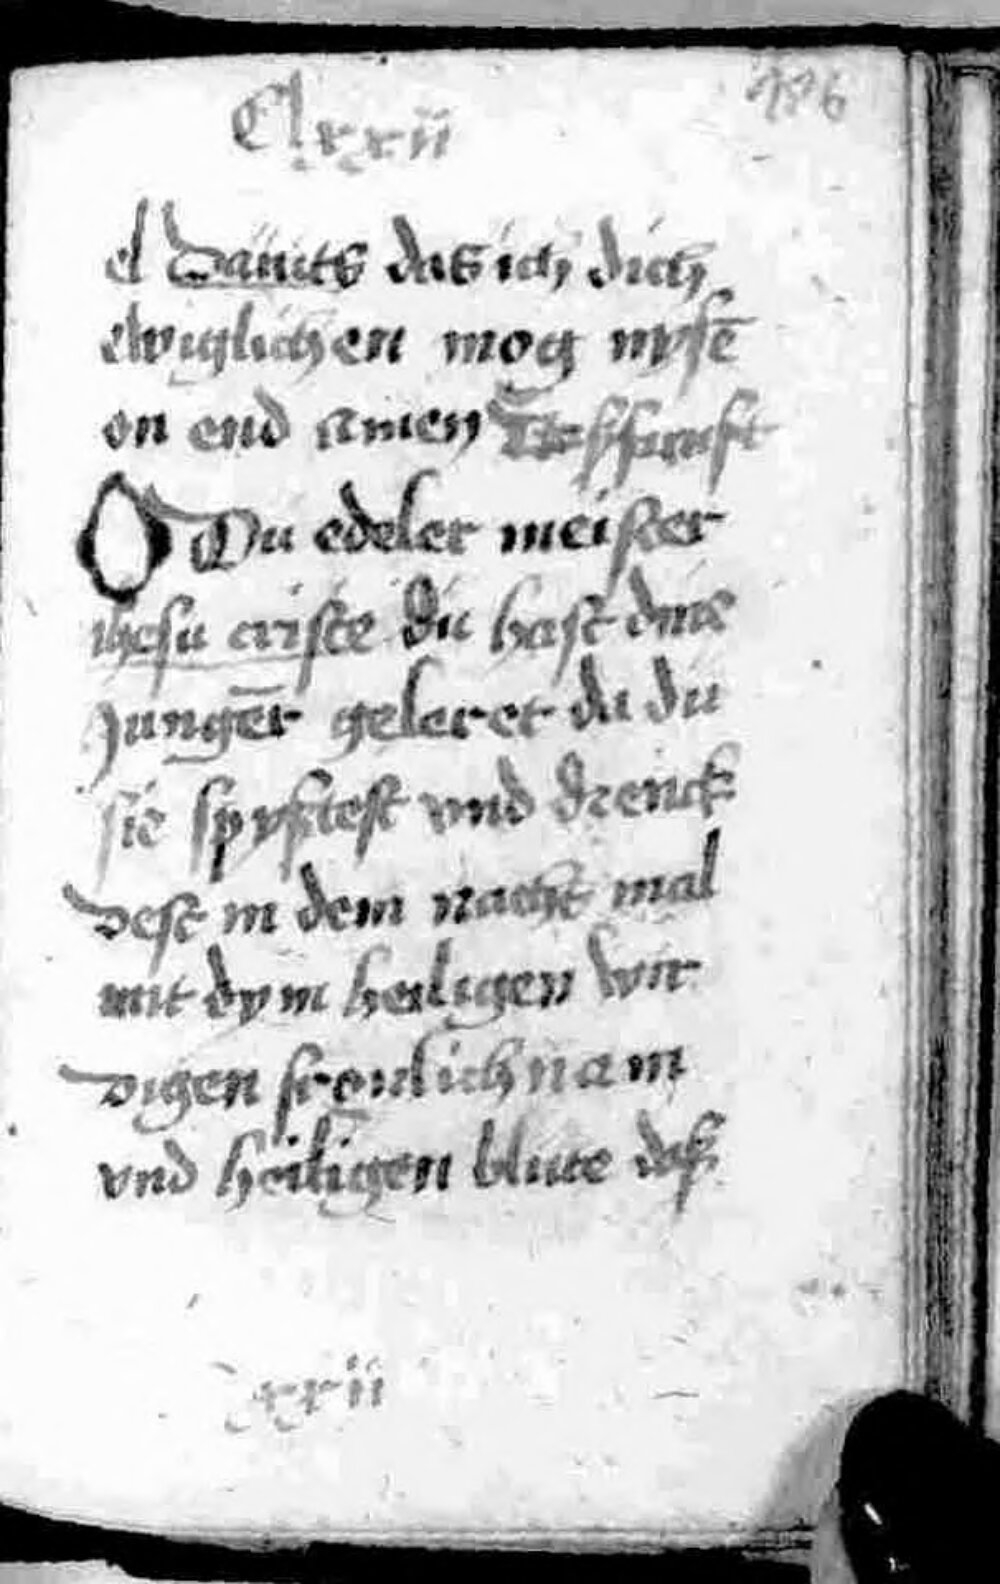 Clxxii
el Dauits das ich dich
ewiglichen mog nysē
on end amen
O Du edeler meister
ihesu criste du hast dine
Jungēr geleret da du
sie spyßtest vnd drenck
dest in dem nacht mal
mit dym heiligen wir
digen fronlichnam
vnd heiligen blute das
xxii